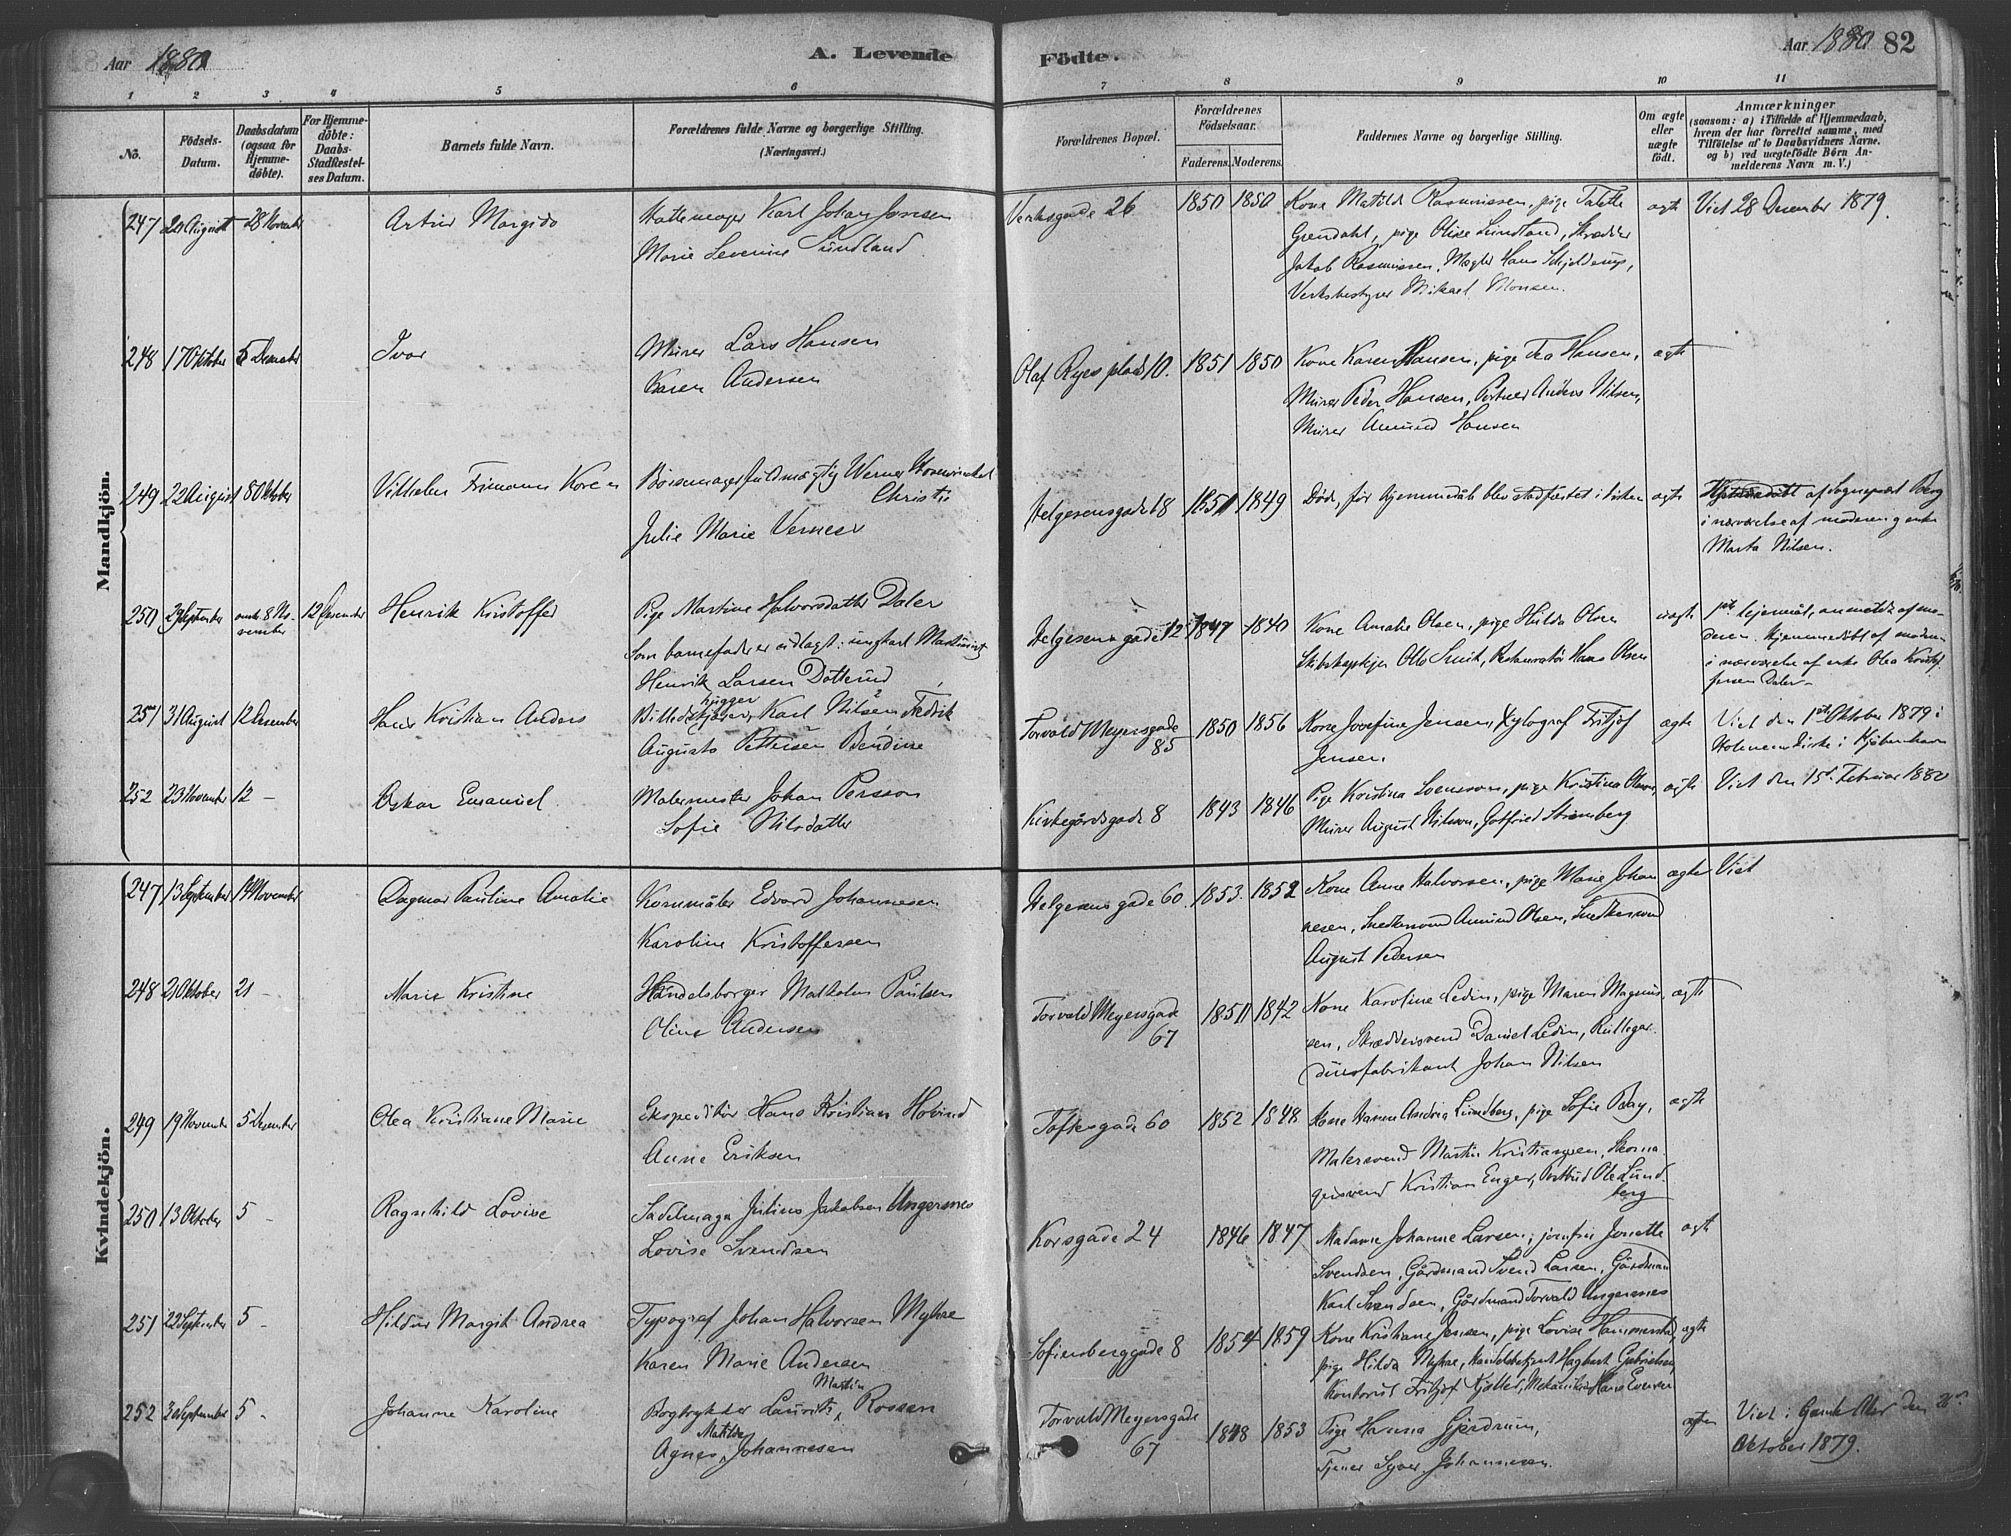 Aar 1880
A. Levende
Födte.
Aar 1880
82
1 2 3 4 5 6 7 8 9 10 11
No.
Födsels-Datum.
Daabsdatum (ogsaa for Hjemme-döbte).
For Hjemme-döbte: Daabs-Stadfæstel-ses Datum.
Barnets fulde Navn.
Forældrenes fulde Navne og borgerlige Stilling.
(Næringsvei.)
Forældrenes Bopæl.
Forældrenes Födselsaar.
Faderens. Moderens.
Faddernes Navne og borgerlige Stilling.
Om ægte eller uægte födt.
Anmærkninger
(saasom: a) i Tilfælde af Hjemmedaab,
hvem der har forrettet samme, med
Tilföielse af to Daabsvidners Navne.
og b) ved uægtefödte Börn An-
melderens Navn m. V.)
Mandkjön.
247 August 28 November Margido Hattemager Karl Johan Jensen
Marie Severine Sundland
Verksgade 26 1850 1850 Kone Matild Rasmussen, pige Talette
Grendahl, pige Oline Sundland, Skrædder
Jakob Rasmussen, Mægler Hans Schjelderup,
Verksbestyrer Mikael Monsen.
ægte Viet 28 December 1879.
248 17 Oktober 5 December Ivar Murer Lars Hansen
Karen Andersen
Olaf Ryes plads 10. 1851 1850 Kone Karen Hansen, pige Tea Hansen,
Murer Peder Hansen, Portner Anders Nilsen,
Murer Amund Hansen
ægte
249 22 August 8 Oktober Vilhelm Frimann Koren Werner Christie
Julie Marie
Helgesensgade 18 1849 Död, för hjemmedåb blev stadfæstet i kirken ægte
af Sogneprest Berg
i nærværelse af moderen og enke
Marta Nilsen.
250 29 September 8 November 12 December Henrik Kristoffer Pige Martine Halvorsdatter Daler
Som barnefader er udlagt: ungkarl
Henrik Larsen Dotterud
Helgesens gade 12 1847 1840 Kone Amalie Olsen, pige Hulda Olsen
Otto Smit, Restauratør Hans Olsen
uægte
lejermål, anmeldt af mo-
deren. Hjemmedöbt af
i nærværelse af enke Olea Kristof-
fersen Daler
251 31 August 12 December Hans Kristian Anders Billedhugger, Karl Nilsen Fedrik
Augusta Pettersen Bendine
Torvald Meyersgade 85 1850 1856 Kone Josefine Jensen, Xylograf Fritjof
Jensen.
ægte
Viet den 1ste Oktober 1879 i
Holmens kirke i Kjøbenhavn
252 23 November 12 - Oskar Emanuel Malermester Johan Persson
Sofie Nilsdatter
Kirkegårdsgade 8 1843 1846 Pige Kristina Svensson, pige Kristina Olsson,
Murer August Nilsson, Gotfried Strömberg
ægte Viet den 15d Februar 1880
Kvindekjön.
247 13 September 14 November Dagmar Pauline Amalie Kornmåler Edvard Johannesen
Karoline Kristoffersen
Helgesens gade 60. 1853. 1852 Kone Anne Halvorsen, pige Marie Johan
nesen, Snedkersvend Amund Olsen, Snedkersvend
August Pedersen
ægte Viet
248 21 Oktober 21 - Marie Kristine Handelsborger Malkolm Paulsen
Oline Andersen
Torvald Meyersgade 67 1842 Kone Karoline Ledin, pige Maren Magnus
sen, Skræddersvend Daniel Ledin, Rullegar-
dinsfabrikant Johan Nilsen
ægte
249 19 November 5 December Olea Kristiane Marie Ekspeditør Hans Kristian Hovind
Anne Eriksen
Toftesgade 60 1852 1848 Kone Karen Andrea Lundberg, pige Sofie Bay,
Malersvend Martin Kristiansen, Skoma-
gersvend Kristian Enger, Ole Lund-
berg
ægte
250 13 Oktober 5 - Ragnhild Lovise Sadelmager Julius Jakobsen Ungersnes
Lovise Svendsen
Korsgade 24 1846 1847 Madame Johanne Larsen, jomfru Jonette
Svendsen, Gårdmand Svend Larsen, Gårdman
Karl Svendsen, Gårdmand Torvald Ungersnes
ægte
251 22 September 5 - Hildur Margit Andrea Typograf Johan Halvorsen Myhre
Karen Marie Andersen
Sofienberggade 8 1854 1859 Kone Kristiane Jensen, pige Lovise
pige Hilda Myhre, Hagbart Gabrielsen,
Kontorist Fritjof Mekaniker Hans Evensen
ægte
252 September 5 - Johanne Karoline Bogtrykker Laurits Martin Rossen
Agnes Matilde Johannesen
Torvald Meyersgade 67 1848 1853 Pige Hanna Gjerdrum,
Tjener Syver Johannesen.
ægte Viet i Gamle Aker den
Oktober 1879.